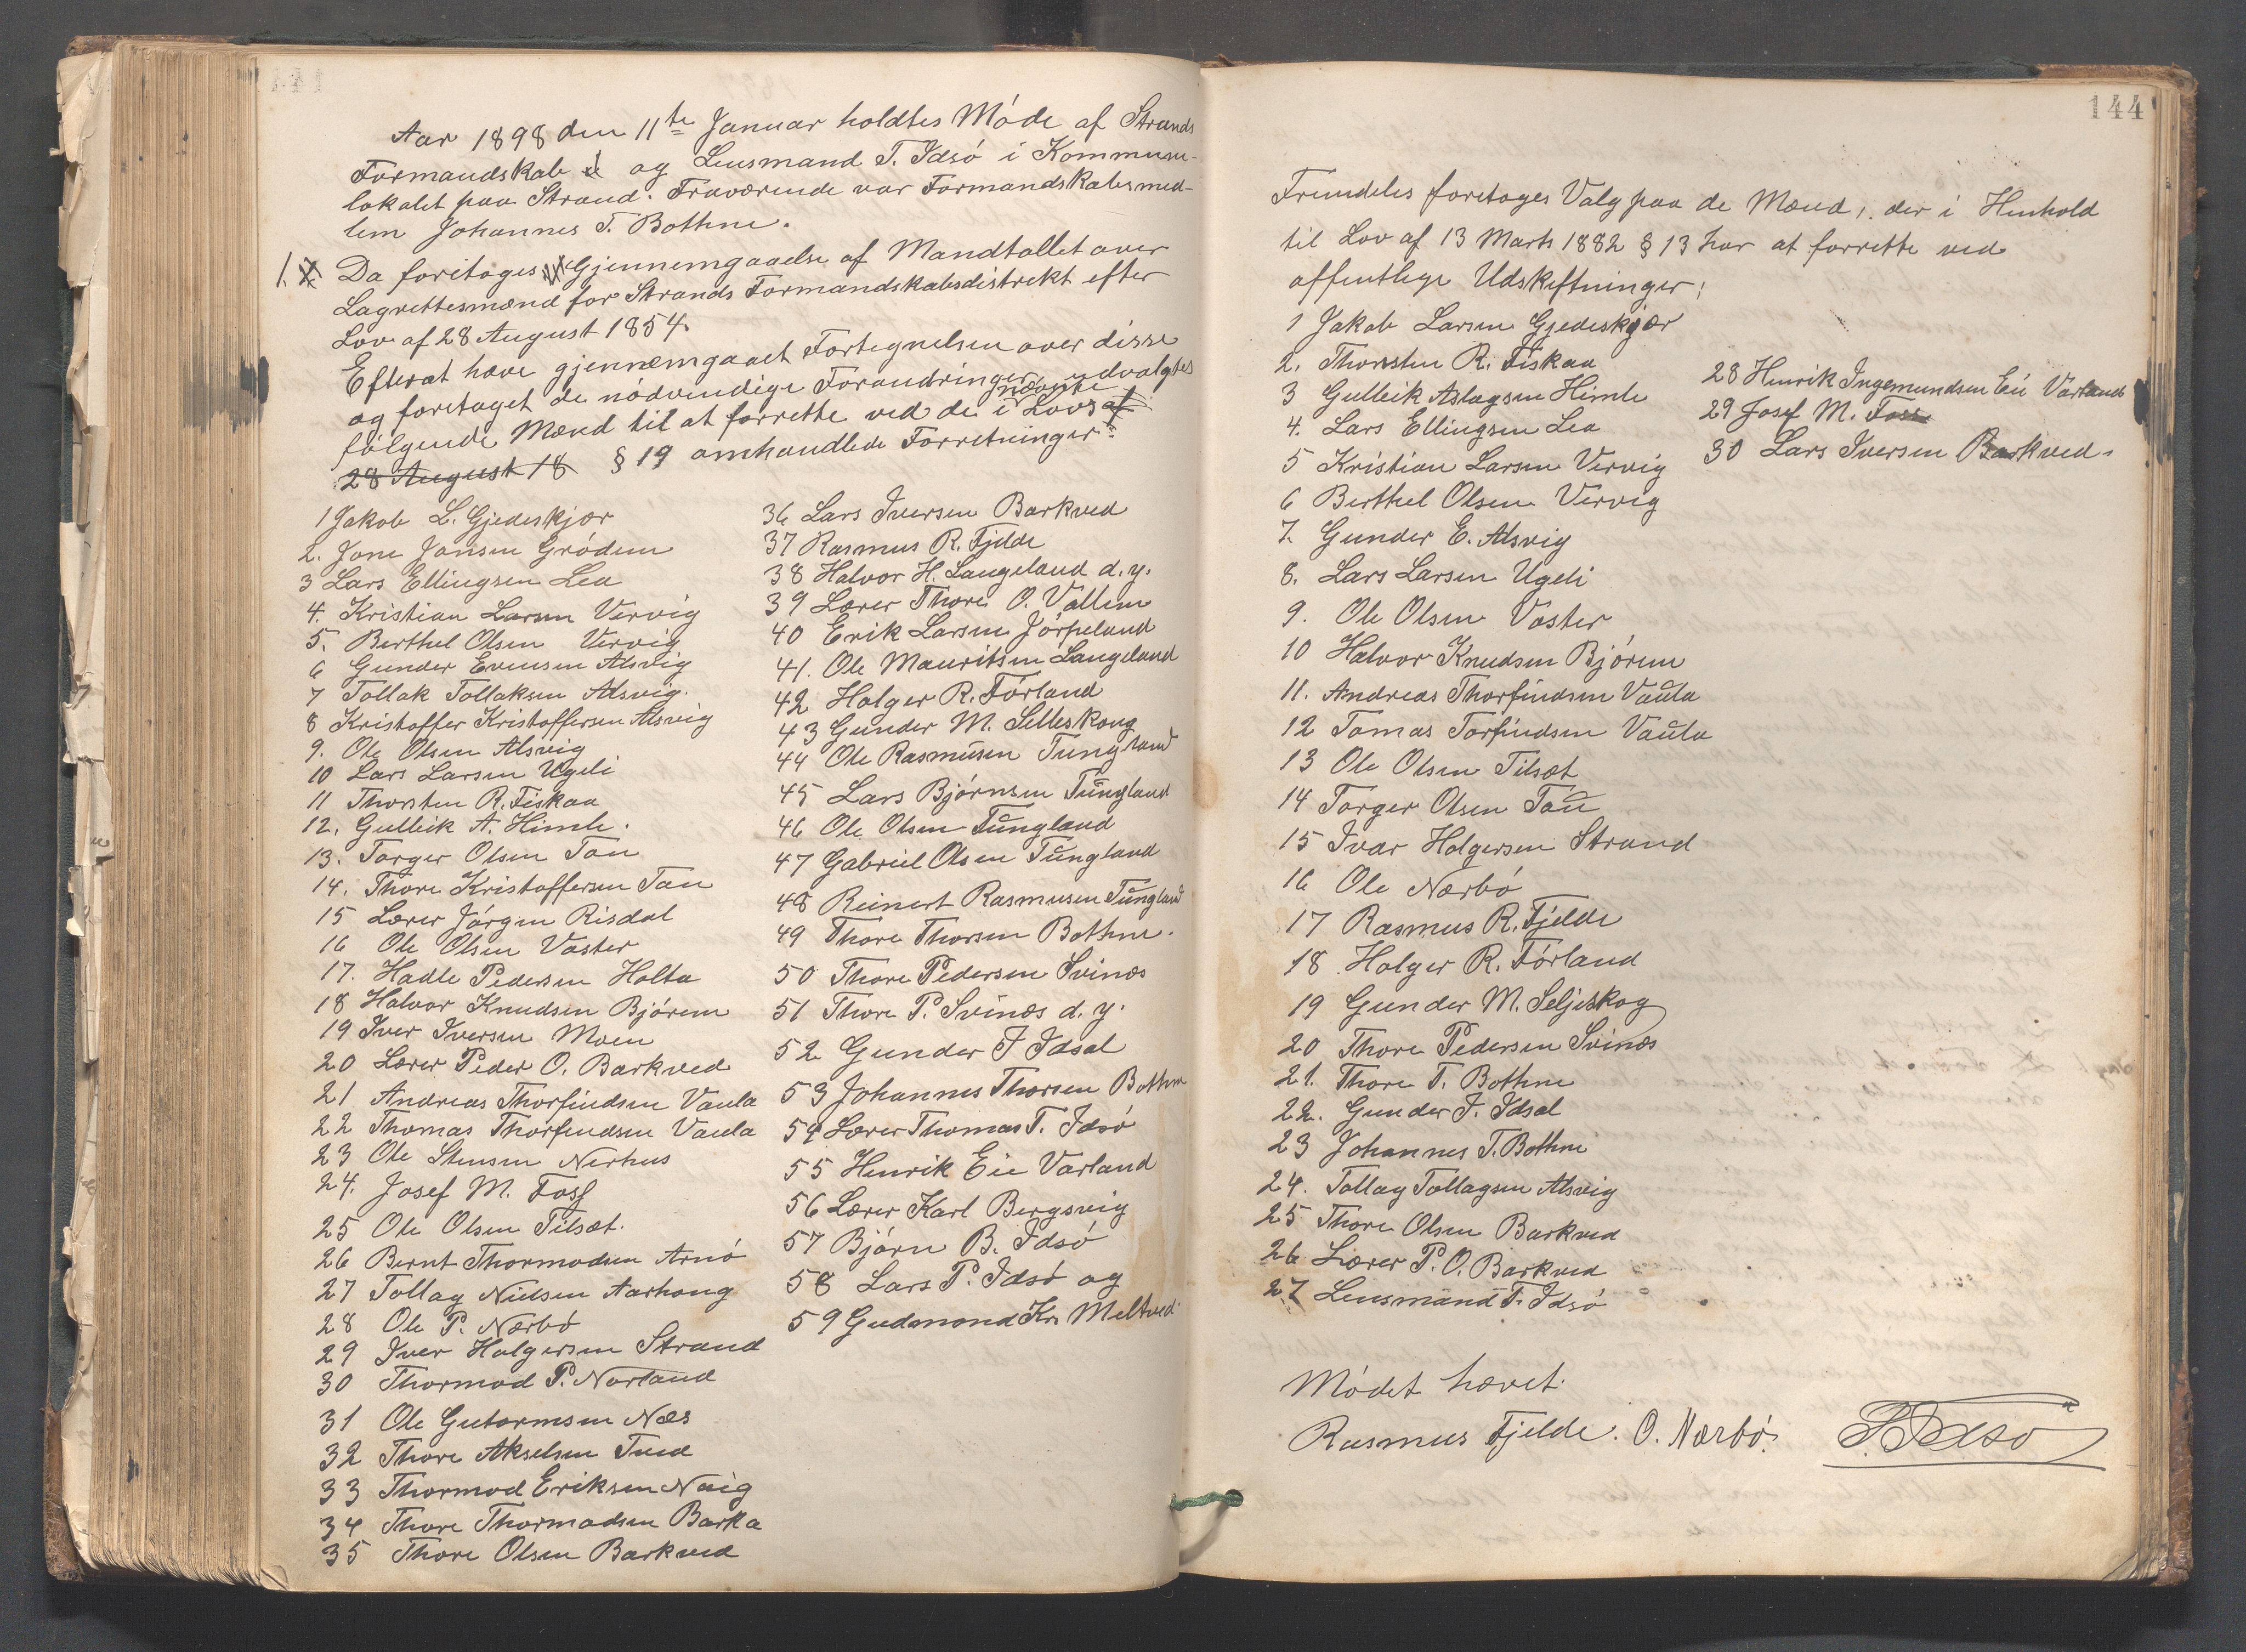 Aar 1898 den 11te Januar holdtes Móde af Strands
Formandskab og Lensmand T. Idsó i Kommune-
lokalet paa Strand. Fraværende var Formandskabsmed-
lem Johannes T. Bothne.
1. Da foretoges Gjennemgaaelse af Mandtallet over
Lagrettesmænd for Strands Formandskabsdistrekt efter
Lov af 28 August 1854.
Efterat have gjennemgaaet Fortegnelsen over disse
og foretaget de nódvendige Forandringer, udvalgtes
fólgende Mænd til at forrette ved de i nævnte Lovs af
28 August 18 § 19 omhandlede Forretninger:
1 Jakob L. Gjedeskjær
2. Jone Jonsen Gródem
3 Lars Ellingsen Lea
4. Kristian Larsen Vervig
5. Berthel Olsen Vervig
6 Gunder Evensen Alsvig
7 Tollak Tollaksen Alsvig.
8 Kristoffer Kristoffersen Alsvig
9. Ole Olsen Alsvig
10 Lars Larsen Ugeli
11 Thorsten R. Fiskaa
12. Gulleik A. Himle.
13. Torger Olsen Tau
14. Thore Kristoffersen Tau
15 Lærer Jórgen Risdal
16 Ole Olsen Voster
17. Hadle Pedersen Holta
18 Halvor Knudsen Bjórem
19 Iver Iversen Moen
20 Lærer Peder O. Barkved
21 Andreas Thorfindsen Vaula
22 Thomas Thorfindsen Vaula
23 Ole Stensen Nerhus
24. Josef M. Foss
25 Ole Olsen Tilsæt.
26 Bernt Thormodsen Arnó
27 Tollag Nilsen Aarhoug
28 Ole P. Nærbó
29 Iver Holgersen Strand
30 Thormod P. Norland
31 Ole Gutormsen Næs
32 Thore Akselsen Tveid
33 Thormod Eriksen Naig
34 Thore Thormodsen Barka
35 Thore Olsen Barkved
36 Lars Iversen Barkved
37 Rasmus R. Fjelde
38 Halvor H. Langeland d. y.
39 Lærer Thore O. Vallem
40 Erik Larsen Jórpeland
41. Ole Mauritsen Langeland
42 Holger R. Fórland
43 Gunder M. Selleskoug
44 Ole Rasmusen Tungland
45 Lars Bjórnsen Tungland
46 Ole Olsen Tungland
47 Gabriel Olsen Tungland
48 Reinert Rasmusen Tungland
49 Thore Thorsen Bothne.
50 Thore Pedersen Svinæs
51 Thore P. Svinæs d. y.
52 Gunder J Idsal
53 Johannes Thorsen Bothne
54 Lærer Thomas T. Idsó
55 Henrik Eie Varland
56 Lærer Karl Bergsvig
57 Bjórn B. Idsó
58 Lars P. Idsó og
59 Gudmond Kr. Meltved.
144
Fremdeles foretoges Valg paa de Mænd, der i Henhold
til Lov af 13 Marts 1882 § 13 har at forrette ved
offentlige Udskiftninger:
1 Jakob Larsen Gjedeskjær
2. Thorsten R. Fiskaa
3 Gulleik Aslagsen Himle
4. Lars Ellingsen Lea
5 Kristian Larsen Vervig
6 Berthel Olsen Vervig
7. Gunder E. Alsvig
8. Lars Larsen Ugeli
9. Ole Olsen Voster
10 Halvor Knudsen Bjórem
11. Andreas Thorfindsen Vaula
12 Tomas Torfindsen Vaula
13 Ole Olsen Tilsæt
14 Torger Olsen Tau
15 Ivar Holgersen Strand
16 Ole Nærbó
17 Rasmus R. Fjelde
18 Holger R. Fórland
19 Gunder M. Seljeskog
20 Thore Pedersen Svinæs
21. Thore T. Bothne
22. Gunder J. Idsal
23 Johannes T. Bothne
24. Tollag Tollagsen Alsvig
25 Thore Olsen Barkved
26 Lærer P. O. Barkved
27 Lensmand T. Idsó
28 Henrik Ingemundsen Eie Varland
29 Josef M. Foss
30 Lars Iversen Barkved.
Módet hævet.
Rasmus Fjelde. O. Nærbó. T. Idsó